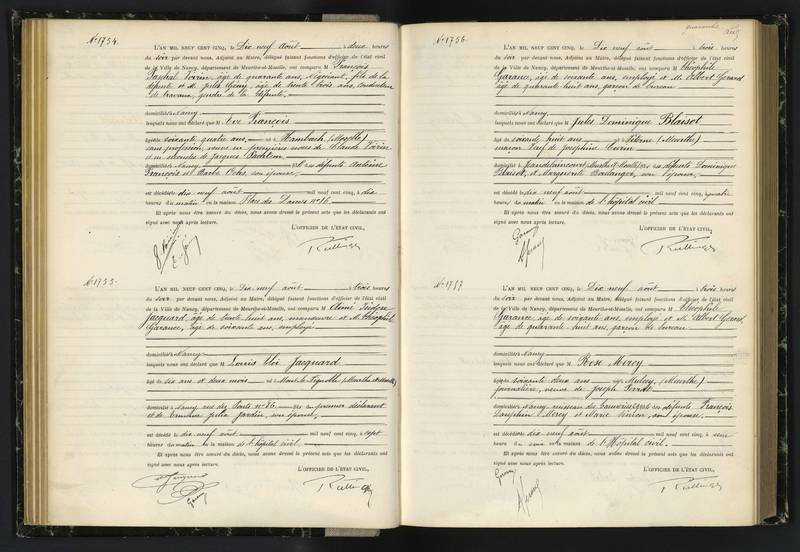 N° 1754.
L'AN MIL NEUF CENT CINQ, le Dix neuf août à deux heures
du soir par devant nous, Adjoint au Maire, délégué faisant fonctions d'officier de l'état civil
de la Ville de Nancy, département de Meurthe-et-Moselle, ont comparu M François
âgé de quarante ans, Négociant, fils de la
défunte et M. Jules âgé de trente trois ans, conducteur
de travaux, gendre de la défunte,
domiciliés à Nancy
lesquels nous ont déclaré que M Eve François
âgée soixante quatre ans, née à Hambach (Moselle)
sans profession, veuve en premières noces de Claude
et en secondes de Jacques
domiciliée à Nancy fille de défunts Antoine
François et Barbe son épouse,
est décédée dix-neuf août mil neuf cent cinq, à dix
heures du matin en la maison Place des Dames n° 16
Et après nous être assuré du décès, nous avons dressé le présent acte que les déclarants ont
signé avec nous après lecture.
L'OFFICIER DE L'ÉTAT CIVIL,
N° 1755.
L'AN MIL NEUF CENT CINQ, le Dix neuf août à trois heures
du soir par devant nous, Adjoint au Maire, délégué faisant fonctions d'officier de l'état civil
de la Ville de Nancy, département de Meurthe-et-Moselle, ont comparu M Aimé Isidore
Jacquard, âgé de trente huit ans, manœuvre et M. Théophile
Garance, âgé de soixante ans, employé
domiciliés à Nancy
lesquels nous ont déclaré que M Louis Eloi Jacquard
âgé de six ans et deux mois né à (Meurthe et Moselle)
domicilié à Nancy rue des Ponts n° 86 fils du premier déclarant
et de Julia Jardin, son épouse,
est décédé le dix-neuf août mil neuf cent cinq, à sept
heures du matin en la maison de l'hôpital civil.
Et après nous être assuré du décès, nous avons dressé le présent acte que les déclarants ont
signé avec nous après lecture.
L'OFFICIER DE L'ÉTAT CIVIL,
quarante cinq
N° 1756.
L'AN MIL NEUF CENT CINQ, le Dix neuf août à trois heures
du soir par devant nous, Adjoint au Maire, délégué faisant fonctions d'officier de l'état civil
de la Ville de Nancy, département de Meurthe-et-Moselle, ont comparu M Théophile
Garance, âgé de soixante ans, employé et M. Albert Gérard
âgé de quarante huit ans, garçon de bureau
domiciliés à Nancy
lesquels nous ont déclaré que M Jules Dominique Blaisot
âgé de soixante huit ans né à (Meurthe)
maçon veuf de Joséphine
domicilié à (Meurthe et Moselle) fils de défunts Dominique
Blaisot, et Marguerite Boulanger, son épouse,
est décédé le dix neuf août mil neuf cent cinq, à quatre
heures du matin en la maison de l'hôpital civil
Et après nous être assuré du décès, nous avons dressé le présent acte que les déclarants ont
signé avec nous après lecture.
L'OFFICIER DE L'ÉTAT CIVIL,
N° 1757
L'AN MIL NEUF CENT CINQ, le Dix neuf août à trois heures
du soir par devant nous, Adjoint au Maire, délégué faisant fonctions d'officier de l'état civil
de la Ville de Nancy, département de Meurthe-et-Moselle, ont comparu M Théophile
Garance, âgé de soixante ans, employé et M. Albert Gérard
âgé de quarante huit ans, garçon de bureau
domiciliés à Nancy
lesquels nous ont déclaré que M Rose Mercy
âgée soixante deux ans née à Mulcey (Meurthe)
journalière, veuve de Joseph
domiciliée à Nancy, fille de défunts François
Mercy et Marie son épouse,
est décédée dix neuf août mil neuf cent cinq, à
heures du en la maison de l'Hôpital civil.
Et après nous être assuré du décès, nous avons dressé le présent acte que les déclarants ont
signé avec nous après lecture.
L'OFFICIER DE L'ÉTAT CIVIL,